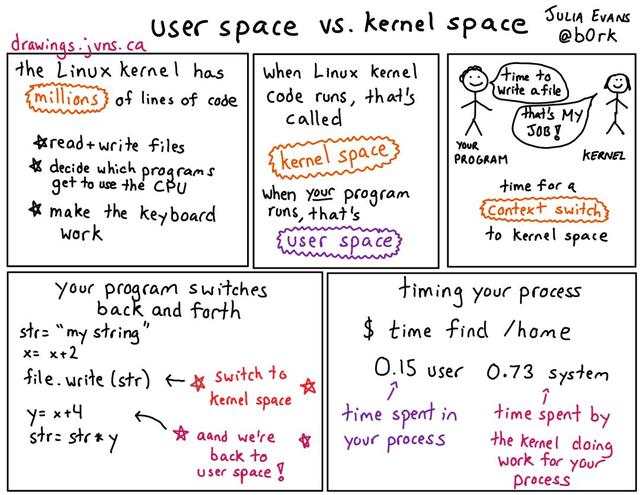 user space vs. kernel space
JULIA EVANS
@b0rk
drawings.jvns.ca
the Linux kernel has
millions of lines of code
read+write files
decide which programs
get to use the CPU
make the keyboard
work
when Linux kernel
code runs, that's
called
kernel space
when your program
runs, that's
user space
time to
write a file
that's MY
JOB!
YOUR
PROGRAM
KERNEL
time for a
context switch
to kernel space
your program switches
back and forth
str= "my string"
x= x+2
file.write(str)
switch to
kernel space
y= x+4
str= str*y
aand we're
back to
user space!
timing your process
$ time find /home
0.15 user
0.73 system
time spent in
your process
time spent by
the kernel doing
work for your
process